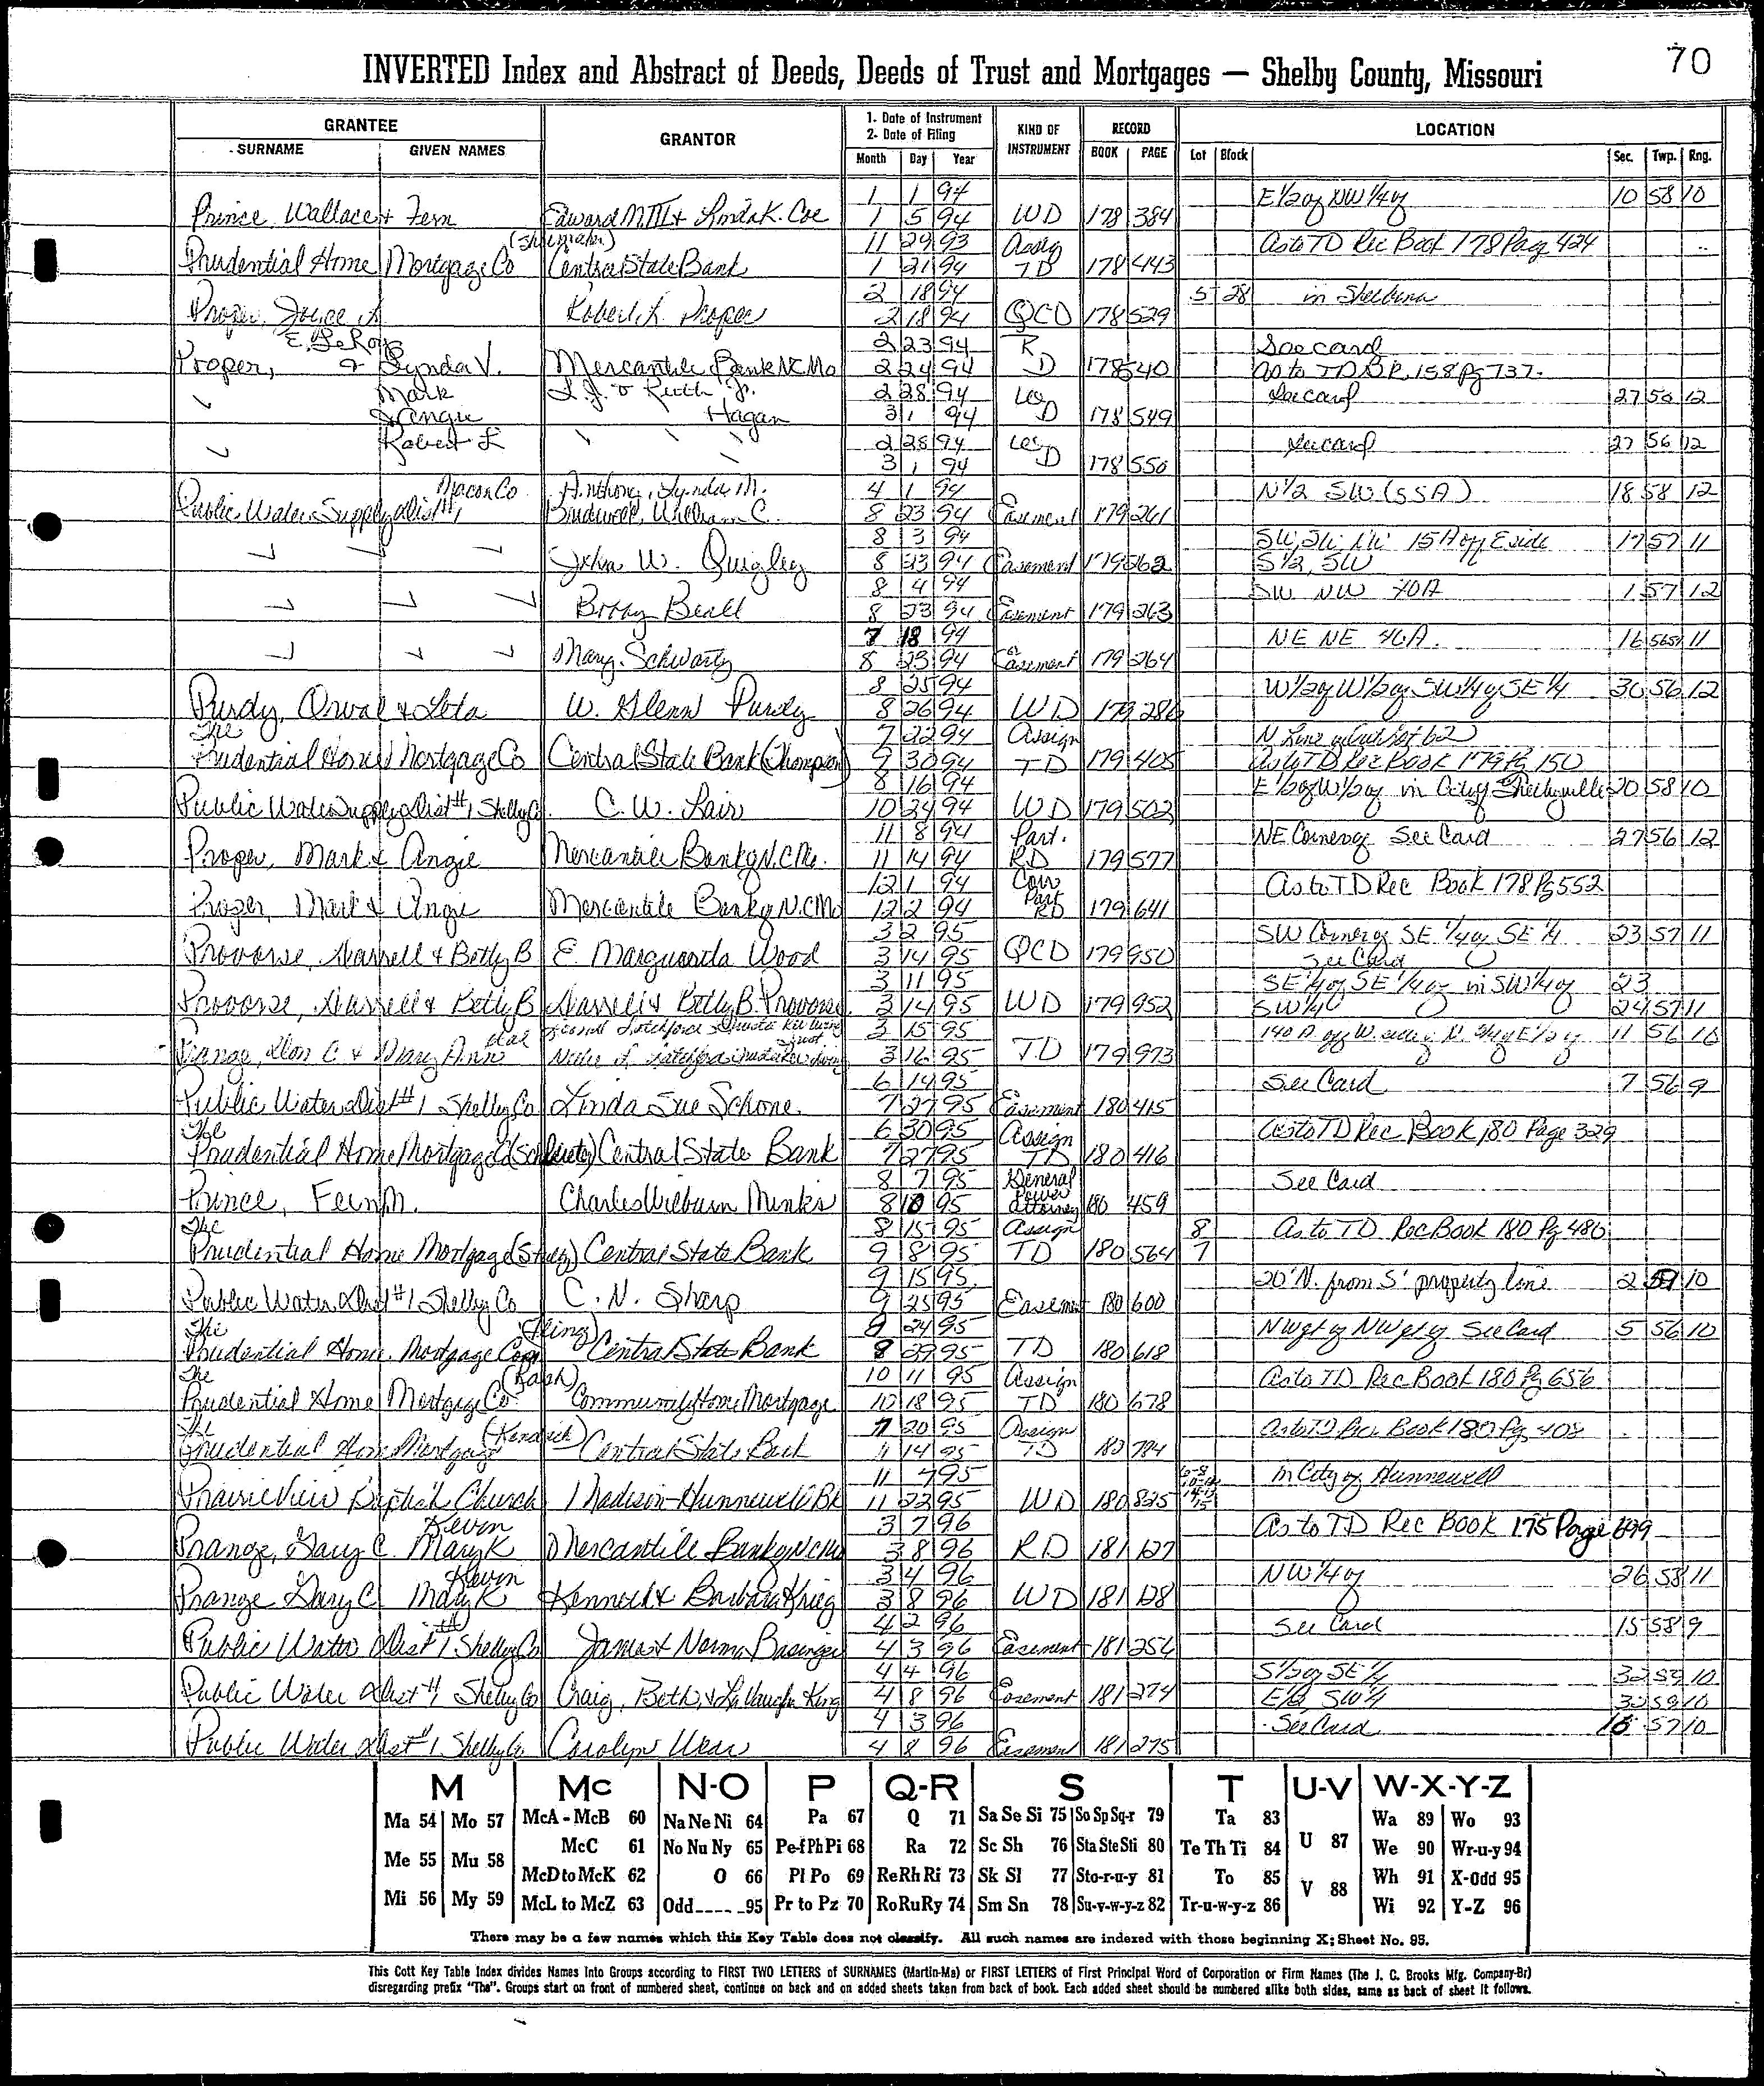 70
INVERTED Index and Abstract of Deeds, Deeds of Trust and Mortgages — Shelby County, Missouri
GRANTEE GRANTOR 1. Date of Instrument 2. Date of Filing KIND OF INSTRUMENT RECORD LOCATION
SURNAME GIVEN NAMES Month Day Year BOOK PAGE Lot Block Sec. Twp. Rng.
1 1 94 E 1/2 of NW 1/4 of 10 58 10
Prince, Wallace & Fern Edward M III & Linda K. Coe 1 5 94 WD 178 384
11 29 93 Assig As to TD Rec Book 178 Pag 424
Prudential Home Mortgage Co Central State Bank 1 21 94 TD 178 443
2 18 94 5 28 in Shelbina
Proper, Joyce A Robert L. Proper 2 18 94 QCD 178 529
E. LeRoy 2 23 94 R See card
Proper, & Lynda V. Mercantile Bank NC Mo 2 24 94 D 178 540 as to TD DR. 158 pg 737.
Mark L.J. & Ruth Jr. 2 28 94 See card 27 56 12
& Angie Hagan 3 1 94 D 178 549
Robert L 2 28 94 See card 27 56 12
3 1 94 D 178 550
Macon Co Anthony, Lynda M. 4 1 94 N 1/2 SW (SSA) 18 58 12
Public Water Supply Dist #1, Bridwell, William C. 8 23 94 Easement 179 261
8 3 94 15 A off E side 17 57 11
John W. Quigley 8 23 94 Easement 179 262 S 1/2, SW
8 4 94 SW NW 40A 1 57 12
Bobby Beall 8 23 94 Easement 179 263
7 18 94 NE NE 40A. 16 11
Mary Schwartz 8 23 94 Easement 179 264
8 25 94 W 1/2 of W 1/2 of SW 1/4 of SE 1/4 30 56 12
Purdy, Orval & Leta W. Glenn Purdy 8 26 94 WD 179 286
The 7 22 94 Assign N Line
Prudential Home Mortgage Co Central State Bank (Thompson) 9 30 94 TD 179 405 As to TD Rec Book 179 Pg 150
8 16 94 E 1/2 of W 1/2 of in City of Shelbyville 20 58 10
Public Water Supply Dist #1 Shelby Co. C.W. Lair 10 24 94 WD 179 502
11 8 94 Part. NE Corner of See Card 27 56 12
Proper, Mark & Angie Mercantile Bank of N.C. Mo. 11 14 94 RD 179 577
12 1 94 Corr As to TD Rec Book 178 Pg 552
Proper, Mark & Angie Mercantile Bank of N.C. Mo 12 2 94 Part RD 179 641
3 2 95 SW Corner of SE 1/4 of SE 1/4 23 57 11
Provorse, Darrell & Betty B E. Marguerita Wood 3 14 95 QCD 179 950 See Card
3 11 95 SE 1/4 of SE 1/4 of in SW 1/4 of 23
Provorse, Darrell & Betty B Darrell & Betty B. Provorse 3 14 95 WD 179 952 SW 1/4 24 57 11
3 15 95 140 A off W. side of 11 56 10
Prange, Don C. & Mary Ann 3 16 95 TD 179 973
6 14 95 See Card 7 56 9
Public Water Dist #1 Shelby Co Linda Sue Schone 7 27 95 Easement 180 415
The 6 30 95 Assign As to TD Rec Book 180 Page 329
Prudential Home Mortgage Co Central State Bank 7 27 95 TD 180 416
8 7 95 General See Card
Prince, Fern M. Charles Wilburn Minks 8 10 95 Power Attorney 180 459
The 8 15 95 Assign 8 As to TD Rec Book 180 Pg 480
Prudential Home Mortgage Central State Bank 9 8 95 TD 180 564 7
9 15 95 20' N. from S' property line 2 57 10
Public Water Dist #1 Shelby Co C.N. Sharp 9 25 95 Easement 180 600
The (Kling) 8 24 95 NW pt of NW pt of See Card 5 56 10
Prudential Home Mortgage Corp Central State Bank 8 29 95 TD 180 618
The 10 11 95 Assign As to TD Rec Book 180 Pg 656
Prudential Home Mortgage Co Community Home Mortgage 10 18 95 TD 180 678
The (Kendrick) 7 20 95 Assign As to TD Rec Book 180 Pg 408
Prudential Home Mortgage Central State Bank 11 14 95 TD 180 794
11 7 95 in City of Hunnewell
Prairie View Baptist Church Madison-Hunnewell Bk 11 22 95 WD 180 825
Kevin 3 7 96 As to TD Rec Book 175 Page 699
Prange, Gary C. Mary K Mercantile Bank of NC Mo 3 8 96 RD 181 127
Kevin 3 4 96 NW 1/4 of 26 58 11
Prange Gary C Mary K Kenneth & Barbara Krieg 3 8 96 WD 181 128
4 2 96 See Card 15 58 9
Public Water Dist #1 Shelby Co James & Norma Basinger 4 3 96 Easement 181 256
4 4 96 S 1/2 of SE 1/4 32 59 10
Public Water Dist #1 Shelby Co Craig, Beth, & LaVaughn King 4 8 96 Easement 181 274 E 1/2 SW 1/4 32 59 10
4 3 96 See Card 15 57 10
Public Water Dist #1 Shelby Co Carolyn Wear 4 8 96 Easement 181 275
M Mc N-O P Q-R S T U-V W-X-Y-Z
Ma 54 Mo 57 McA - McB 60 Na Ne Ni 64 Pa 67 Q 71 Sa Se Si 75 So Sp Sq-r 79 Ta 83 U 87 Wa 89 Wo 93
Me 55 Mu 58 McC 61 No Nu Ny 65 Pe-f Ph Pi 68 Ra 72 Sc Sh 76 Sta Ste Sti 80 Te Th Ti 84 V 88 We 90 Wr-u-y 94
McD to McK 62 O 66 Pl Po 69 Re Rh Ri 73 Sk Sl 77 Sto-r-u-y 81 To 85 Wh 91 X-Odd 95
Mi 56 My 59 McL to McZ 63 Odd---- 95 Pr to Pz 70 Ro Ru Ry 74 Sm Sn 78 Su-v-w-y-z 82 Tr-u-w-y-z 86 Wi 92 Y-Z 96
There may be a few names which this Key Table does not classify. All such names are indexed with those beginning X; Sheet No. 95.
This Cott Key Table Index divides Names Into Groups according to FIRST TWO LETTERS of SURNAMES (Martin-Ma) or FIRST LETTERS of First Principal Word of Corporation or Firm Names (The J. C. Brooks Mfg. Company-Br)
disregarding prefix "The". Groups start on front of numbered sheet, continue on back and on added sheets taken from back of book. Each added sheet should be numbered alike both sides, same as back of sheet it follows.